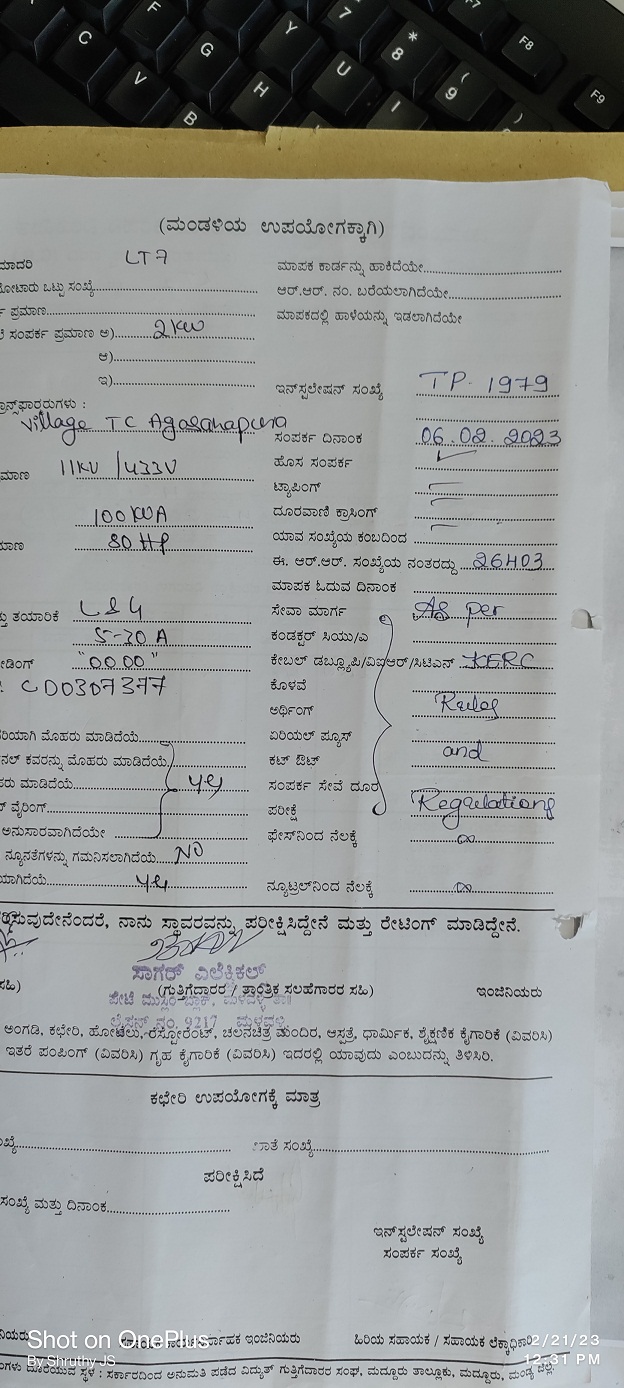 (ಮಂಡಳಿಯ ಉಪಯೋಗಕ್ಕಾಗಿ)
ಮಾದರಿ LT7
ಮಾಪಕ ಕಾರ್ಡನ್ನು ಹಾಕಿದೆಯೇ
ಮೋಟಾರು ಒಟ್ಟು ಸಂಖ್ಯೆ
ಆರ್.ಆರ್. ನಂ. ಬರೆಯಲಾಗಿದೆಯೇ
ಪ್ರಮಾಣ
ಮಾಪಕದಲ್ಲಿ ಹಾಳೆಯನ್ನು ಇಡಲಾಗಿದೆಯೇ
ಸಂಪರ್ಕ ಪ್ರಮಾಣ ಅ) 2 KW
ಆ)
ಇ)
ಇನ್‌ಸ್ಟಲೇಷನ್ ಸಂಖ್ಯೆ TP. 1979
ಟ್ರಾನ್ಸ್‌ಫಾರರುಗಳು :
Village TC Agasanapura
ಸಂಪರ್ಕ ದಿನಾಂಕ 06.02.2023
ಹೊಸ ಸಂಪರ್ಕ ✓
11KV / 433V
ಟ್ಯಾಪಿಂಗ್
100 KVA
ದೂರವಾಣಿ ಕ್ರಾಸಿಂಗ್
80 HP
ಯಾವ ಸಂಖ್ಯೆಯ ಕಂಬದಿಂದ
ಈ. ಆರ್.ಆರ್. ಸಂಖ್ಯೆಯ ನಂತರದ್ದು 26403
ಮಾಪಕ ಓದುವ ದಿನಾಂಕ
ತಯಾರಿಕೆ L&G
ಸೇವಾ ಮಾರ್ಗ As per
5-30 A
ಕಂಡಕ್ಟರ್ ಸಿಯು/ಎ
"00.00"
ಕೇಬಲ್ ಡಬ್ಲ್ಯೂಪಿ/ವಿಐಆರ್/ಸಿಟಿಎನ್ KERC
CD0307377
ಕೊಳವೆ
ಅರ್ಥಿಂಗ್ Rules
ಸರಿಯಾಗಿ ಮೊಹರು ಮಾಡಿದೆಯೆ
ಏರಿಯಲ್ ಪ್ಯೂಸ್
ಕವರನ್ನು ಮೊಹರು ಮಾಡಿದೆಯೆ
ಕಟ್ ಔಟ್ and
ಮಾಡಿದೆಯೆ yes
ಸಂಪರ್ಕ ಸೇವೆ ದೂರ
ವೈರಿಂಗ್
ಪರೀಕ್ಷೆ Regulations
ಅನುಸಾರವಾಗಿದೆಯೇ
ಫೇಸ್‌ನಿಂದ ನೆಲಕ್ಕೆ ∞
ನ್ಯೂನತೆಗಳನ್ನು ಗಮನಿಸಲಾಗಿದೆಯೆ NO
yes
ನ್ಯೂಟ್ರಲ್‌ನಿಂದ ನೆಲಕ್ಕೆ ∞
ನಾನು ಸ್ಥಾವರವನ್ನು ಪರೀಕ್ಷಿಸಿದ್ದೇನೆ ಮತ್ತು ರೇಟಿಂಗ್ ಮಾಡಿದ್ದೇನೆ.
ಸಾಗರ್ ಎಲೆಕ್ಟ್ರಿಕಲ್
ಸಹಿ) (ಗುತ್ತಿಗೆದಾರರ / ತಾಂತ್ರಿಕ ಸಲಹೆಗಾರರ ಸಹಿ) ಇಂಜಿನಿಯರು
ಪೇಟೆ ಮುಸ್ಲಿಂ ಬ್ಲಾಕ್, ಮಳವಳ್ಳಿ ತಾ॥
ಲೈಸನ್ ನಂ. 9217 ಮಳವಳ್ಳಿ
ಅಂಗಡಿ, ಕಛೇರಿ, ಹೋಟೆಲು, ರೆಸ್ಟೋರೆಂಟ್, ಚಲನಚಿತ್ರ ಮಂದಿರ, ಆಸ್ಪತ್ರೆ, ಧಾರ್ಮಿಕ, ಶೈಕ್ಷಣಿಕ ಕೈಗಾರಿಕೆ (ವಿವರಿಸಿ)
ಇತರೆ ಪಂಪಿಂಗ್ (ವಿವರಿಸಿ) ಗೃಹ ಕೈಗಾರಿಕೆ (ವಿವರಿಸಿ) ಇದರಲ್ಲಿ ಯಾವುದು ಎಂಬುದನ್ನು ತಿಳಿಸಿರಿ.
ಕಛೇರಿ ಉಪಯೋಗಕ್ಕೆ ಮಾತ್ರ
ಖಾತೆ ಸಂಖ್ಯೆ
ಪರೀಕ್ಷಿಸಿದೆ
ಸಂಖ್ಯೆ ಮತ್ತು ದಿನಾಂಕ
ಇನ್‌ಸ್ಟಲೇಷನ್ ಸಂಖ್ಯೆ
ಸಂಪರ್ಕ ಸಂಖ್ಯೆ
ಇಂಜಿನಿಯರು ಹಿರಿಯ ಸಹಾಯಕ / ಸಹಾಯಕ ಲೆಕ್ಕಾಧಿಕಾರಿ
Shot on OnePlus
By Shruthy JS
02/21/23
12:31 PM
ದೊರೆಯುವ ಸ್ಥಳ : ಸರ್ಕಾರದಿಂದ ಅನುಮತಿ ಪಡೆದ ವಿದ್ಯುತ್ ಗುತ್ತಿಗೆದಾರರ ಸಂಘ, ಮದ್ದೂರು ತಾಲ್ಲೂಕು, ಮದ್ದೂರು, ಮಂಡ್ಯ ಜಿಲ್ಲೆ.